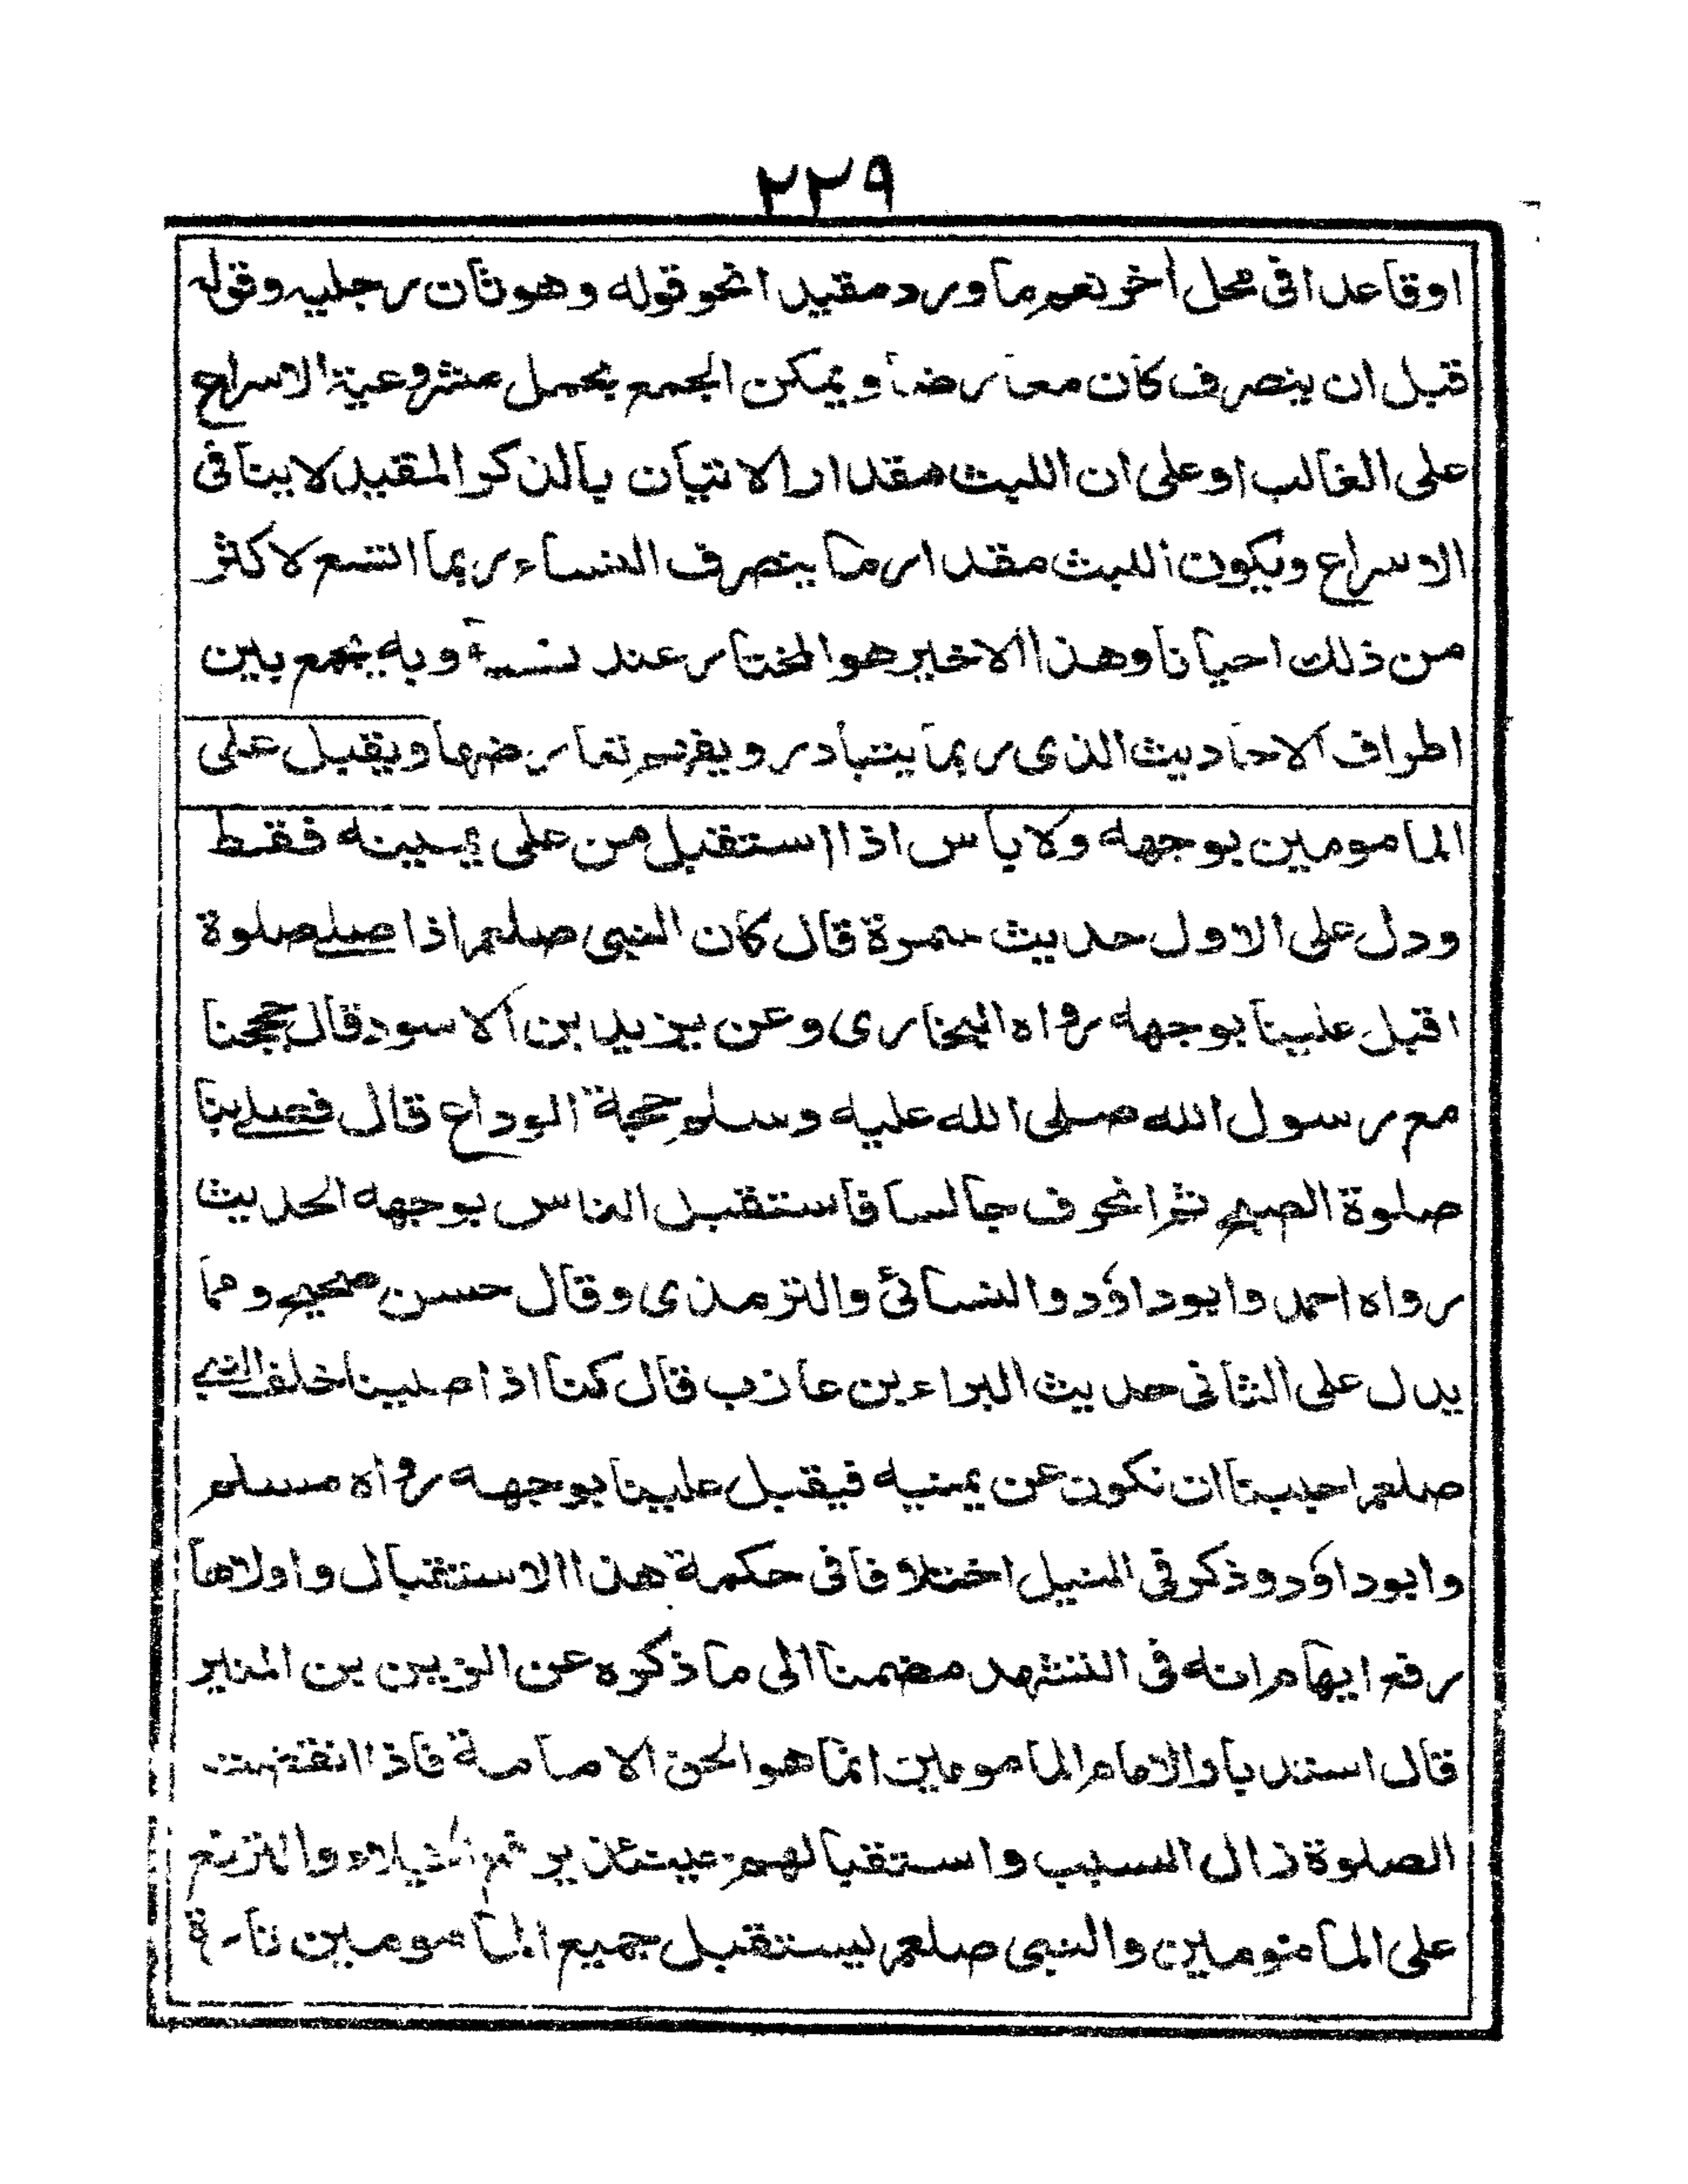 ٢٢٩
اوقاعدا فى محل أخر نعم ما ورد مقيدا نحو قوله وهو ثان رجليه وقوله
قبل ان ينصرف كان معارضا ويمكن الجمع بحمل مشروعية الاسراع
على الغالب او على ان اللبث مقدار الاتيان بالذكر المقيد لا ينافى
الاسراع ويكون اللبث مقدار ما ينصرف النساء ربما اتسع لاكثر
من ذلك احيانا وهذا الاخير هو المختار عند وبه يجمع بين
اطراف الاحاديث الذى ربما يتبادر ويفهم تعارضها ويقبل على
المامومين بوجهه ولا باس اذا استقبل من على يمينه فقط
ودل على الاول حديث سمرة قال كان النبى صلعم اذا صلے صلوة
اقبل علينا بوجهه رواه البخارى وعن يزيد بن الاسود قال حججنا
مع رسول الله صلى الله عليه وسلم حجة الوداع قال فصلے بنا
صلوة الصبح ثم انحرف جالسا فاستقبل الناس بوجهه الحديث
رواه احمد وابوداؤد والنسائى والترمذى وقال حسن صحيح ومما
يدل على الثانى حديث البراء بن عازب قال كنا اذا صلينا خلف النبي
صلعم احببنا ان نكون عن يمينه فيقبل علينا بوجهه رواه مسلم
وابوداؤد وذكر فى النيل اختلافا فى حكمة هذا الاستقبال واولاها
رفع ايهام انه فى التشهد مضمنا الى ما ذكره عن الزين بن المنير
قال استدبار الامام المامومين انما هو لحق الامامة فاذا انقضت
الصلوة زال السبب واستقبالهم حينئذ يرفع الخيلاء والترفع
على المامومين والنبى صلعم يستقبل جميع المامومين تارة